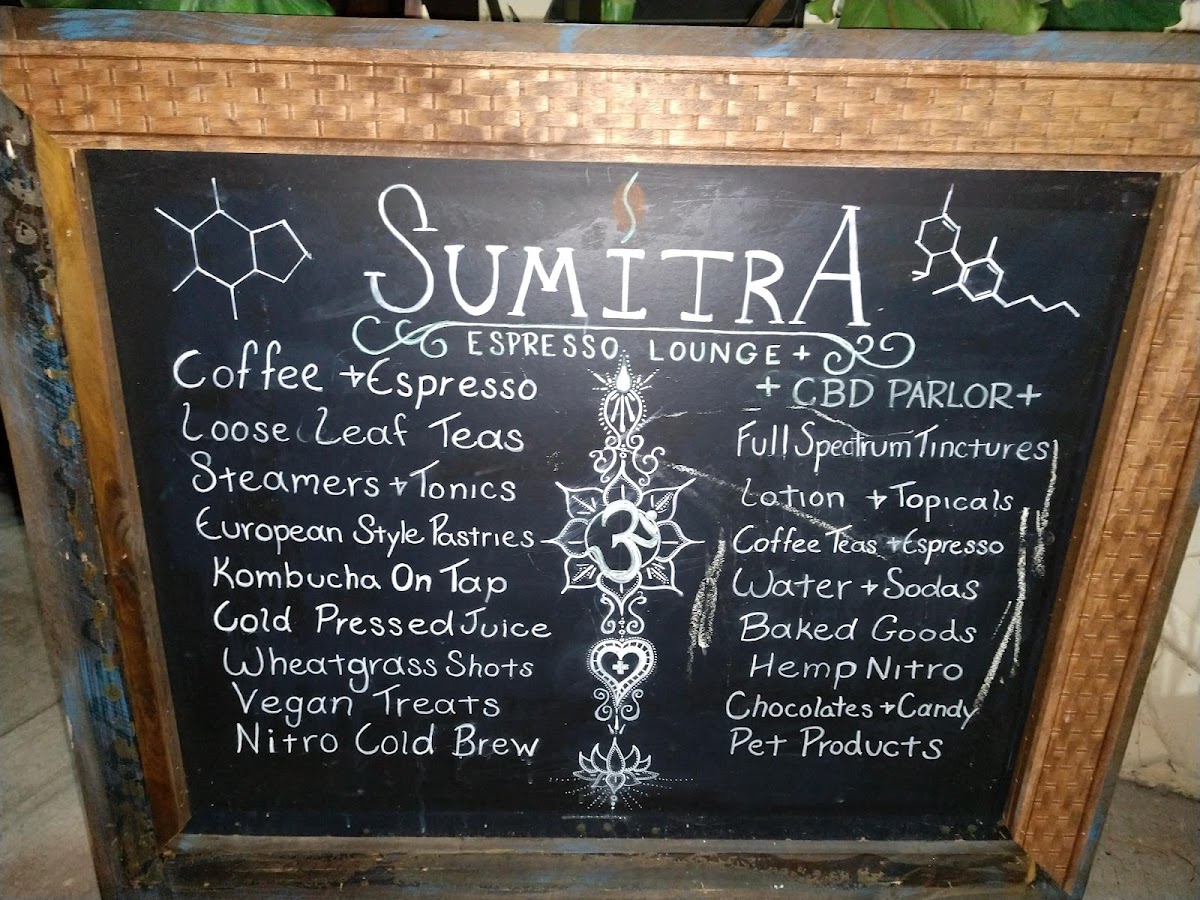 SUMITRA
ESPRESSO LOUNGE +
Coffee + Espresso
Loose Leaf Teas
Steamers + Tonics
European Style Pastries
Kombucha On Tap
Cold Pressed Juice
Wheatgrass Shots
Vegan Treats
Nitro Cold Brew
ॐ
+ CBD PARLOR +
Full Spectrum Tinctures
Lotion + Topicals
Coffee Teas + Espresso
Water + Sodas
Baked Goods
Hemp Nitro
Chocolates + Candy
Pet Products